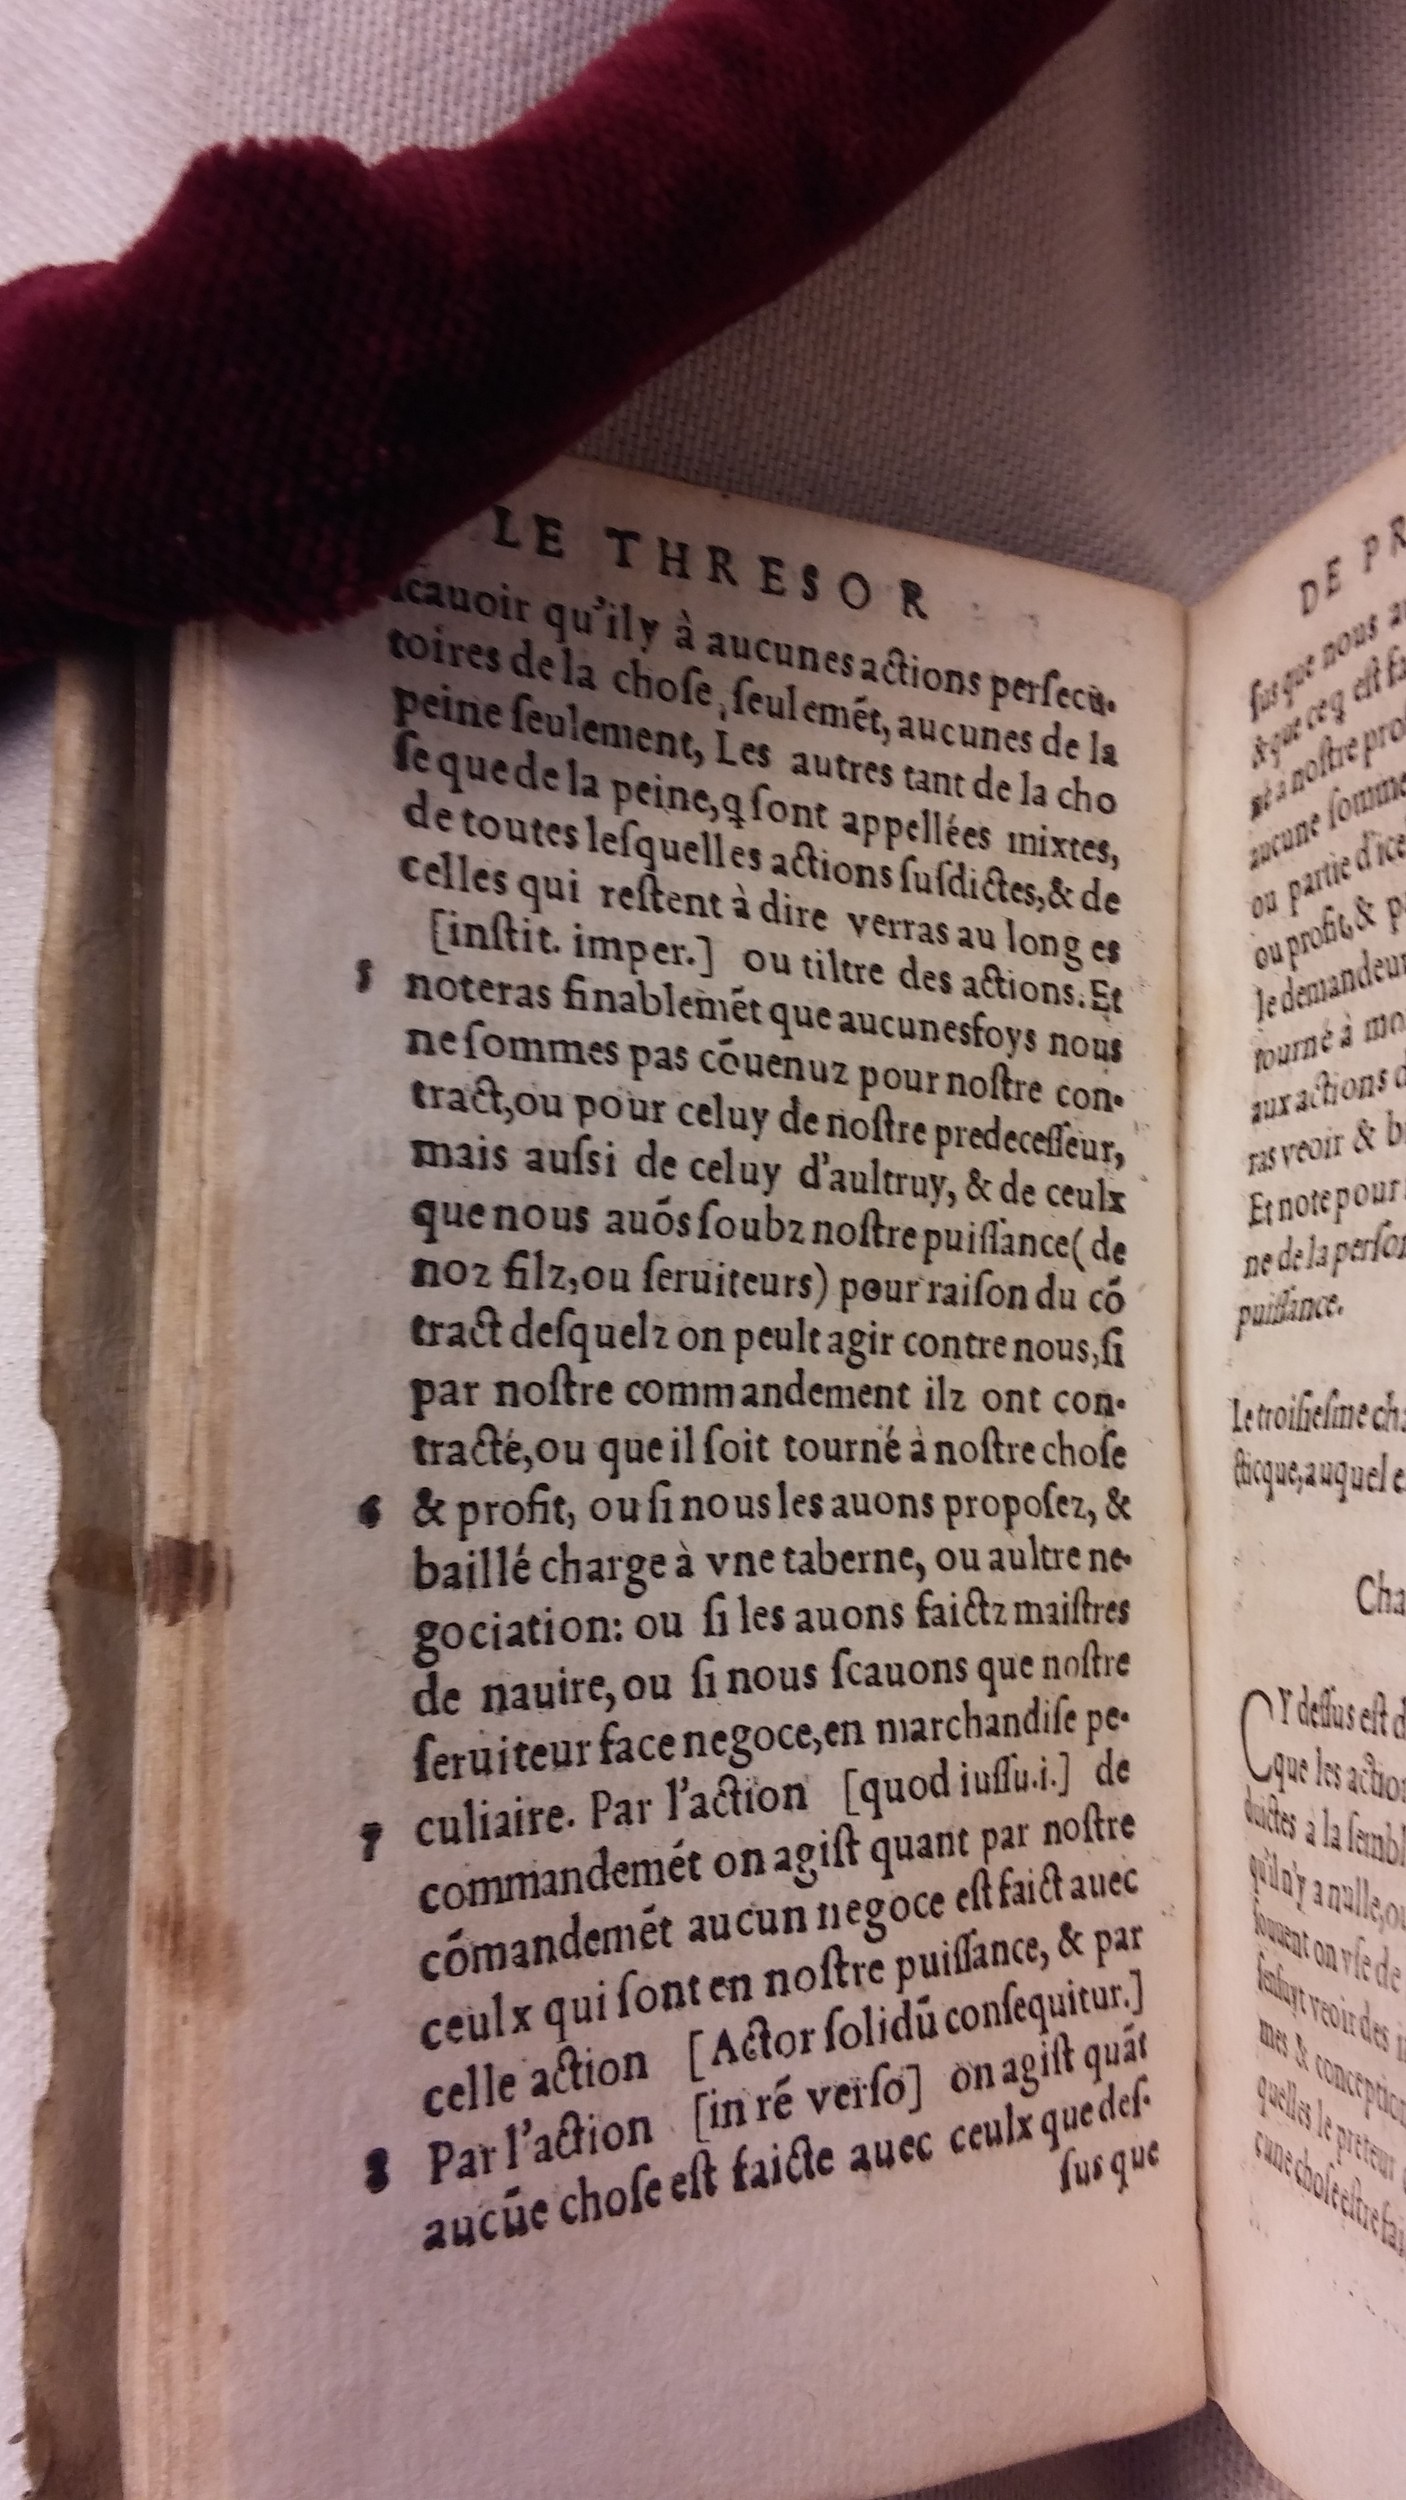 LE THRESOR
ſcauoir qu'il y à aucunes actions perſecu-
toires de la choſe, ſeulemēt, aucunes de la
peine ſeulement, Les autres tant de la cho
ſe que de la peine, q̃ ſont appellées mixtes,
de toutes leſquelles actions ſuſdictes, & de
celles qui reſtent à dire verras au long es
[inſtit. imper.] ou tiltre des actions. Et
5 noteras finablemēt que aucunesfoys nous
ne ſommes pas cōuenuz pour noſtre con-
tract, ou pour celuy de noſtre predeceſſeur,
mais auſsi de celuy d'aultruy, & de ceulx
que nous auōs ſoubz noſtre puiſſance (de
noz filz, ou ſeruiteurs) pour raiſon du cō
tract deſquelz on peult agir contre nous, ſi
par noſtre commandement ilz ont con-
tracté, ou que il ſoit tourné à noſtre choſe
6 & profit, ou ſi nous les auons propoſez, &
baillé charge à vne taberne, ou aultre ne-
gociation: ou ſi les auons faictz maiſtres
de nauire, ou ſi nous ſcauons que noſtre
ſeruiteur face negoce, en marchandiſe pe-
7 culiaire. Par l'action [quod iuſſu.i.] de
commandemēt on agiſt quant par noſtre
cōmandemēt aucun negoce eſt faict auec
ceulx qui ſont en noſtre puiſſance, & par
celle action [Actor ſolidū conſequitur.]
8 Par l'action [in rē verſo] on agiſt quāt
aucūe choſe eſt faicte auec ceulx que deſ-
ſus que
DE PR
ſus que nous
& que ce q̃ eſt
à noſtre
aucune ſomme
ou partie
ou profit, &
le demandeur
tourné à
aux actions
ras veoir &
Et note pour
ne de la
puiſſance.
Le troiſieſme
cticque, auquel
Cha
CY deſſus eſt
que les
duictes a la
qu'il n'y a nulle,
ſouuent on vſe de
ſenſuyt veoir des
mes &
quelles le preteur
cune choſe eſtre